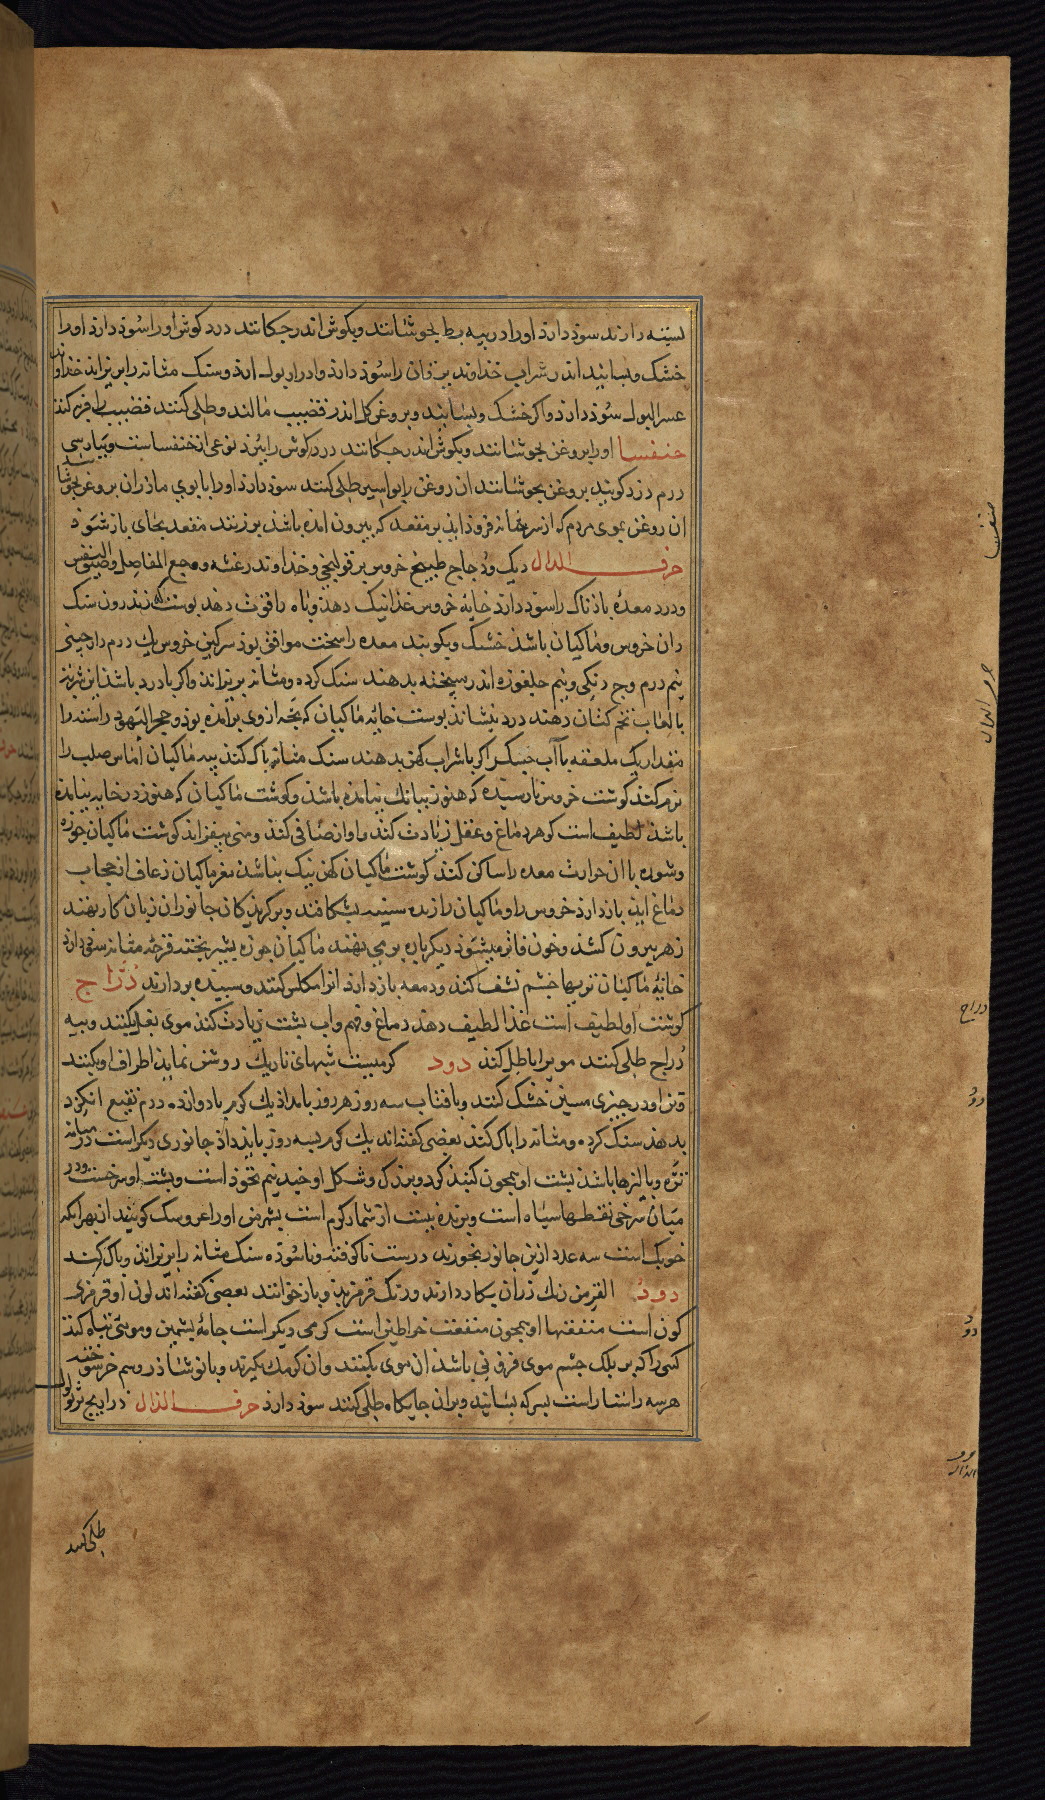 بسته دارند سود دارد او را در پیه بط بجوشانند و بگوش اندر چکانند درد گوش او را سود دارد او را
خشک و بسایند اندر شراب خداوند یرقان را سود دارد و ادرار بول آرد و سنک مثانه را بریزاند خداوند
عسر البول سود دارد و اکر خشک و بسایند و بروغن کل اندر قضیب مالند و طلی کنند قضیب را فربه کند
خنفسا او را بروغن بجوشانند و بگوش اندر چکانند درد کوش را ببرد نوعی از خنفسا ست و بپارسی
درم دزد کویند بروغن بجوشانند ان روغن را بواسیر طلی کنند سود دارد او را با بوی مادران بروغن بجوشانند
ان روغن بموی مردم که از سرشانه فرود آید بر مقعد که بیرون امده باشد برزنند مقعد بجای باز شود
حرف الدال دیک و دجاج طبیخ خروس پر قولنجی و خداوند رعشه و وجع المفاصل و ضیق النفس
و درد معدهٔ بادناک را سود دارد خایه خروس غذا نیک دهد و باه را قوت دهد پوست که اندرون سنک
دان خروس و ماکیان باشد خشک و بکوبند معده را سخت موافق بود سرکین خروس یک درم دارچینی
نیم درم وج دنکی و نیم جلغوزه اندر سیخته بدهند سنک کرده و مثانه بریزاند و اکر با درد باشد این شربت
با لعاب تخم کتان دهند درد بنشاند پوست خایه ماکیان که بچه از وی برآمده بود و حجر الیهود راسته را
مقدار یک ملعقه با آب خسک اکر با شراب کهن بدهند سنک مثانه پاک کند پیه ماکیان آماس صلب را
نرم کند کوشت خروس نارسیده که هنوز ببانک نیامده باشد و کوشت ماکیان که هنوز در خایه نیامده
باشد لطیف است کوهر دماغ و عقل زیادت کند و اواز صافی کند و منی بیفزاید کوشت ماکیان جوزه
و شوربا ان حرارت معده را ساکن کند کوشت ماکیان کهن نیک نباشد مغز ماکیان رعاف از حجاب
دماغ اید باز دارد خروس را و ماکیان را زنده سینه بشکافند و بر کزیدکان جانوران زیان کار نهند
زهر بیرون کشد و چون فاتر میشود دیکر پاره بر می نهند ماکیان جوزه بشیر پخته قرحه مثانه سود دارد
خایهٔ ماکیان تریها چشم نشف کند و دمعه باز دارد انرا مکلس کنند و سپیده بردارند دراج
کوشت او لطیف است غذا لطیف دهد دماغ و فهم و اب پشت زیادت کند موی بغل بکنند و پیه
دراج طلی کنند مویرا باطل کند دود کرمیست شبهای تاریک روشن نماید اطراف او بکنند
و تن او در چیزی مسین خشک کنند و بافتاب سه روز هر روز بامداد یک کرم با دوازده درم نقیع انکزد
بدهند سنک کرده و مثانه را پاک کند بعضی کفته اند یک کرم بسه روز باید داد جانوری دیکر است در میانه
ترّه و پالیزها باشد پشت او همچون کنبذ کرد و بزرک و شکل او خندنیم نخود است و پشت او سرخست و در
میان سرخی نقطها سیاه است و پرنده بیشت از شمار کرم است بشهر من او را عروسک کویند ان بهر انکه
خوبک است سه عدد ازین جانور بخورند درست ناکوفته و ناسوده سنک مثانه را بریزاند و پاک کند
دود القرمز من رنک رزان بکار دارند و رنک قرمزید و باز خوانند بعضی کفته اند لون او قرمزی
کون است منفعتها او همچون منفعت خراطین است کرمی دیکر است جامهٔ پشمین و موئی تباه کند
کسی را که بر پلک چشم موی فزونی باشد ان موی بکنند و ان کرمک بکیرند و با نوشادر و سم خر سوخته
هر سه راستا راست بسرکه بسایند و بران جایکاه طلی کنند سود دارد حرف الذال ذراریح ثؤلول
طلی کنند
خنفسا
حرف الدال
دراج
دود
دود
حرف الذال